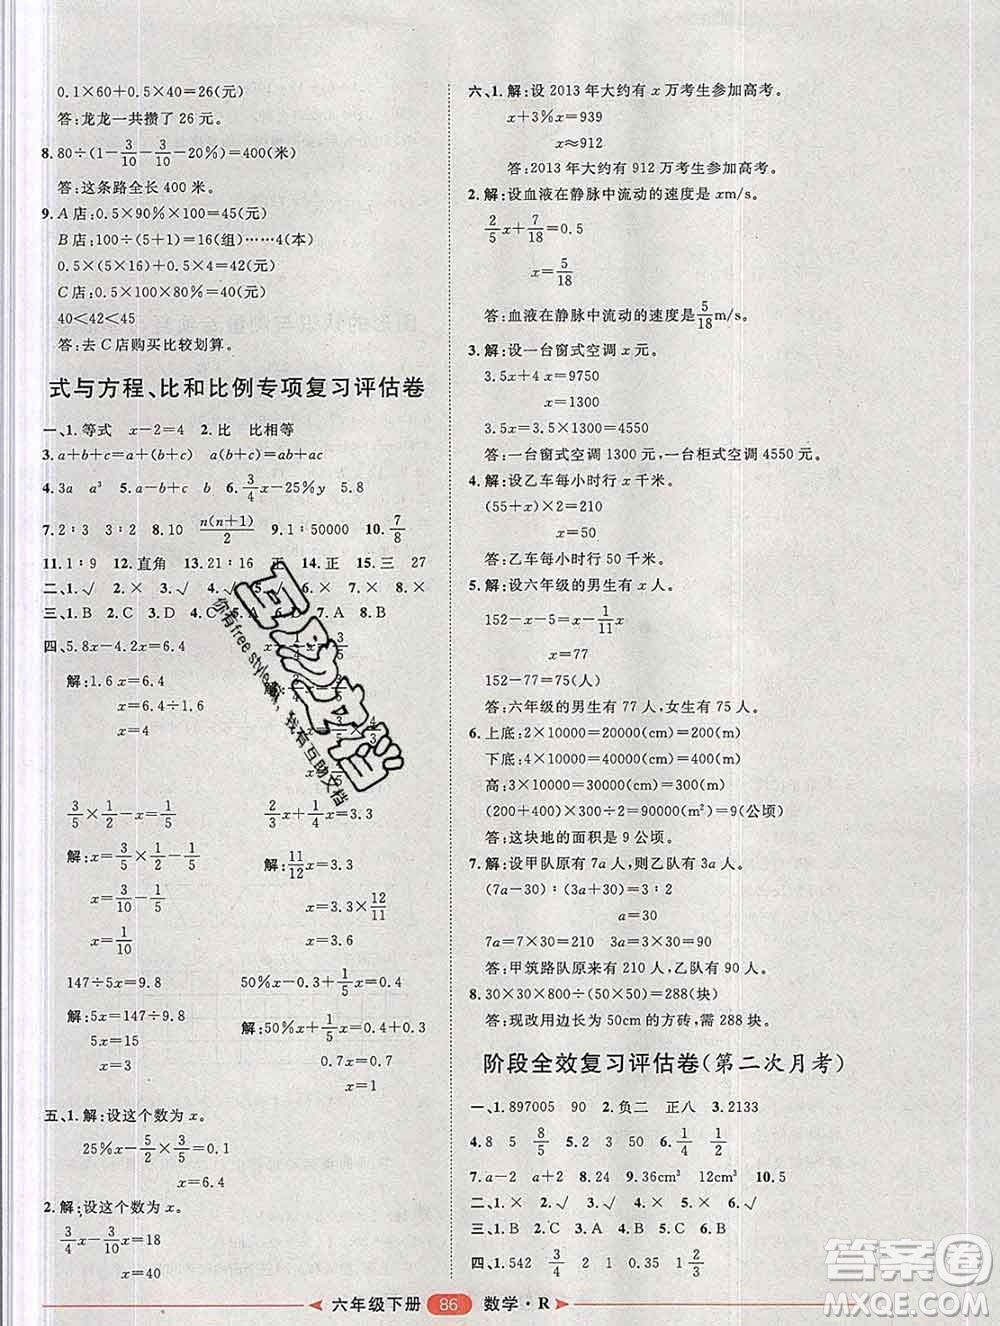 0.1×60+0.5×40=26(元)
答:龙龙一共攒了 26 元。
8. 80÷(1-3/10-3/10-20%)=400(米)
答:这条路全长 400 米。
9. A 店:0.5×90%×100=45(元)
B 店:100÷(5+1)=16(组)……4(本)
0.5×(5×16)+0.5×4=42(元)
C 店:0.5×100×80%=40(元)
40<42<45
答:去 C 店购买比较划算。
式与方程、比和比例专项复习评估卷
一、1. 等式 x-2=4 2. 比 比相等
3. a+b+c=a+(b+c) a(b+c)=ab+ac
4. 3a a³ 5. a-b×c b 6. 3/4x-25%y 5.8
7. 2∶3 3∶2 8. 10 n(n+1)/2 9. 1∶50000 10. 7/8
11. 1∶9 12. 直角 13. 21∶16 正 14. 正 15. 三 27
二、1. √ 2. × 3. × 4. √ 5. √ 6. √ 7. × 8. ×
三、1. B 2. C 3. D 4. C 7. A 8. C
四、5.8x-4.2x=6.4
解:1.6x=6.4
x=6.4÷1.6
x=4
3/5×1/2-x=1/5 2/3x+1/4x=3.3
解:x=3/5×1/2-1/5 解:11/12x=3.3
x=3/10-1/5 x=3.3×12/11
x=1/10 x=3.6
147÷5x=9.8 50%x-0.3+1/5x=0.4
解:5x=147÷9.8 解:50%x+1/5x=0.4+0.3
5x=15 0.7x=0.7
x=3 x=1
五、1. 解:设这个数为 x。
25%x-5/2×3/5=0.1
x=6.4
2. 解:设这个数为 x。
3/4x-3/10x=18
x=40
六、1. 解:设 2013 年大约有 x 万考生参加高考。
x+3%x=939
x≈912
答:2013 年大约有 912 万考生参加高考。
2. 解:设血液在静脉中流动的速度是 xm/s。
2/5x+7/18=0.5
x=5/18
答:血液在静脉中流动的速度是5/18m/s。
3. 解:设一台窗式空调 x 元。
3.5x+4x=9750
x=1300
3.5x=3.5×1300=4550
答:一台窗式空调 1300 元,一台柜式空调 4550 元。
4. 解:设乙车每小时行 x 千米。
(55+x)×5=525
x=50
答:乙车每小时行 50 千米。
5. 解:设六年级的男生有 x 人。
152-x-5=x-1/11x
x=77
152-77=75(人)
答:六年级的男生有 77 人,女生有 75 人。
6. 上底:2×10000=20000(cm)=200(m)
下底:4×10000=40000(cm)=400(m)
高:3×10000=30000(cm)=300(m)
(200+400)×300÷2=90000(m²)=9(公顷)
答:这块地的面积是 9 公顷。
7. 解:设甲队原有 7a 人,则乙队有 3a 人。
(7a-30)∶(3a+30)=3∶2
a=30
7a=7×30=210 3a=3×30=90
答:甲筑路队原来有 210 人,乙队有 90 人。
8. 30×30×800÷(50×50)=288(块)
答:现改用边长为 50cm 的方砖,需 288 块。
阶段全效复习评估卷(第二次月考)
一、1. 897005 90 2. 负二 正八 3. 2133
4. 8 5 8/5 5. 2 3 50 6. 1/4 1/2
7. a-2 a+2 8. 24 9. 36cm² 12cm² 10. 5
二、1. × 2. √ 3. √ 4. × 5. ×
三、1. B 2. C 3. A 4. C 5. B 6. C
四、1. 542 3/4 4 0.4 135 0.48 1 2/3
六年级下册 86 数学·R
你有free style吗,我有互助文档
答案圈
MXQE.COM